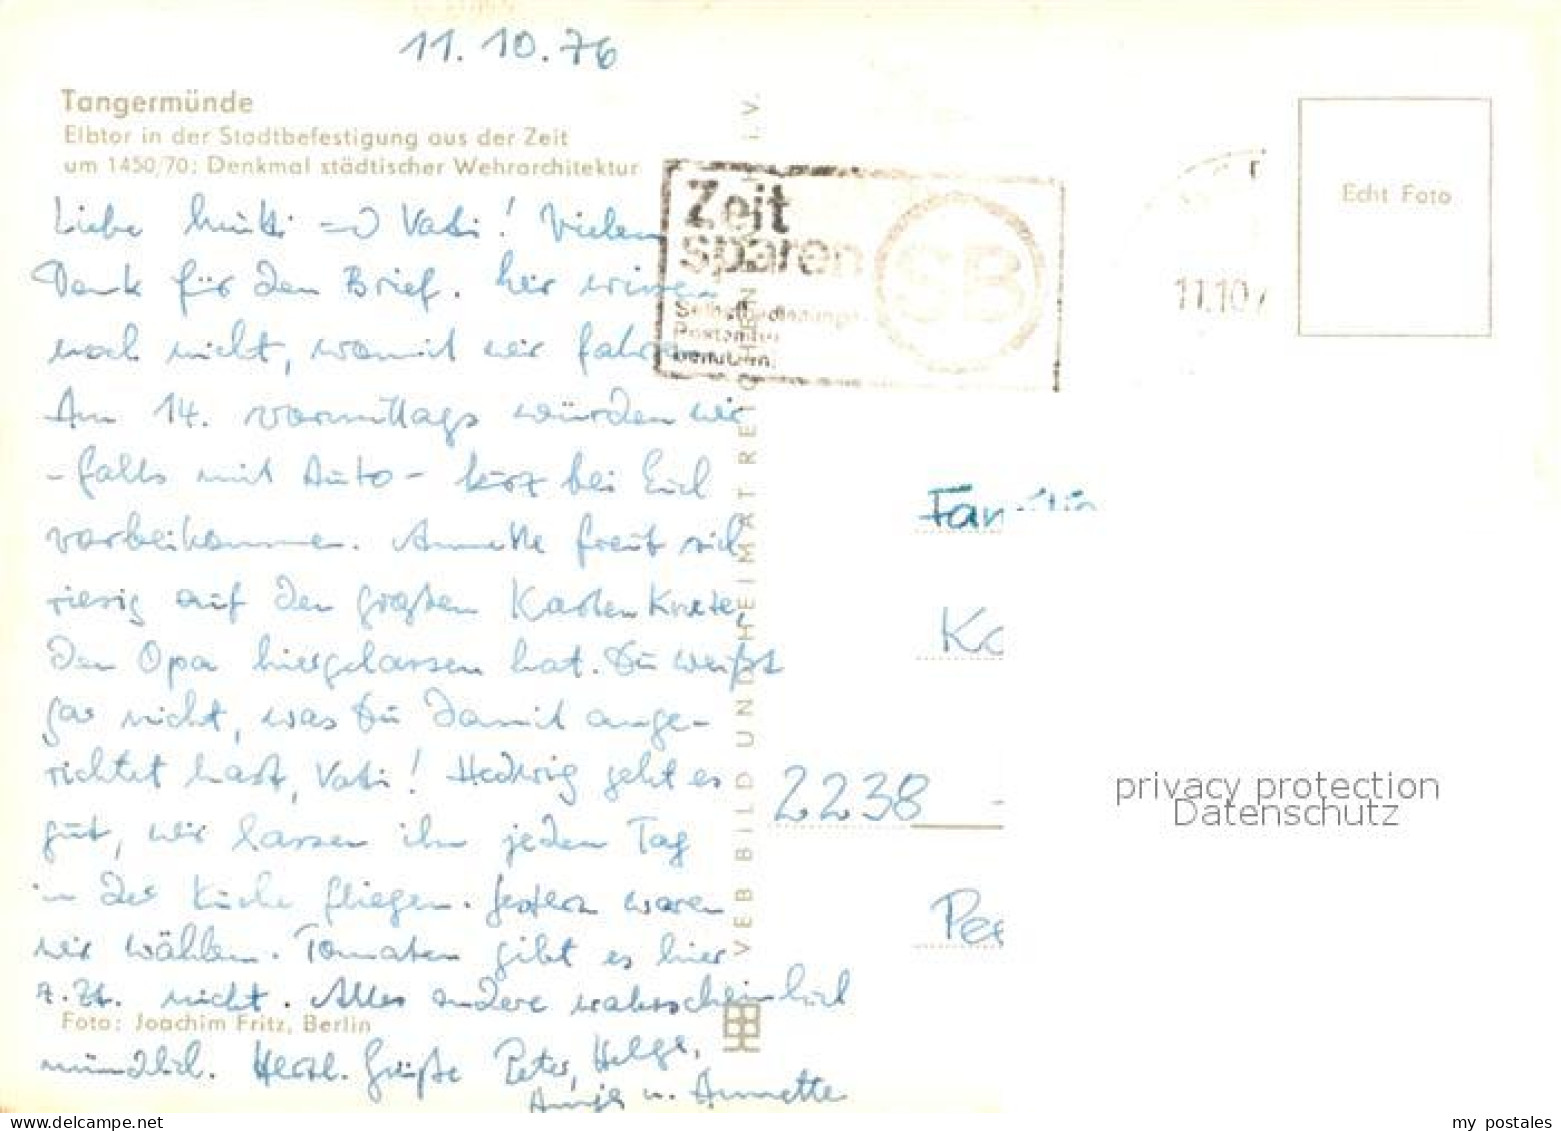 11.10.76
Tangermünde
Elbtor in der Stadtbefestigung aus der Zeit
um 1450/70; Denkmal städtischer Wehrarchitektur
Liebe Mutti und Vati! Vielen
Dank für den Brief. Wir wissen
noch nicht, womit wir fahren.
Am 14. vormittags würden wir
- falls mit Auto - kurz bei Euch
vorbeikommen. Annette freut sich
riesig auf den großen Kasten Knete,
den Opa hiergelassen hat. Du weißt
gar nicht, was Du damit ange-
richtet hast, Vati! Hedwig geht es
gut, wir lassen ihn jeden Tag
in der Küche fliegen. Gestern waren
wir wählen. Tomaten gibt es hier
z. Zt. nicht. Alles andere wahrscheinlich
mündlich. Herzl. Grüße Peter, Helga,
u. Annette
Foto: Joachim Fritz, Berlin
VEB BILD UND HEIMAT REICHENBACH I. V.
Zeit
sparen
SB
Selbstbedienungs-
Postämter
benutzen.
11.10.7
Echt Foto
Familie
Ko
2238
Pe
privacy protection
Datenschutz
my postales